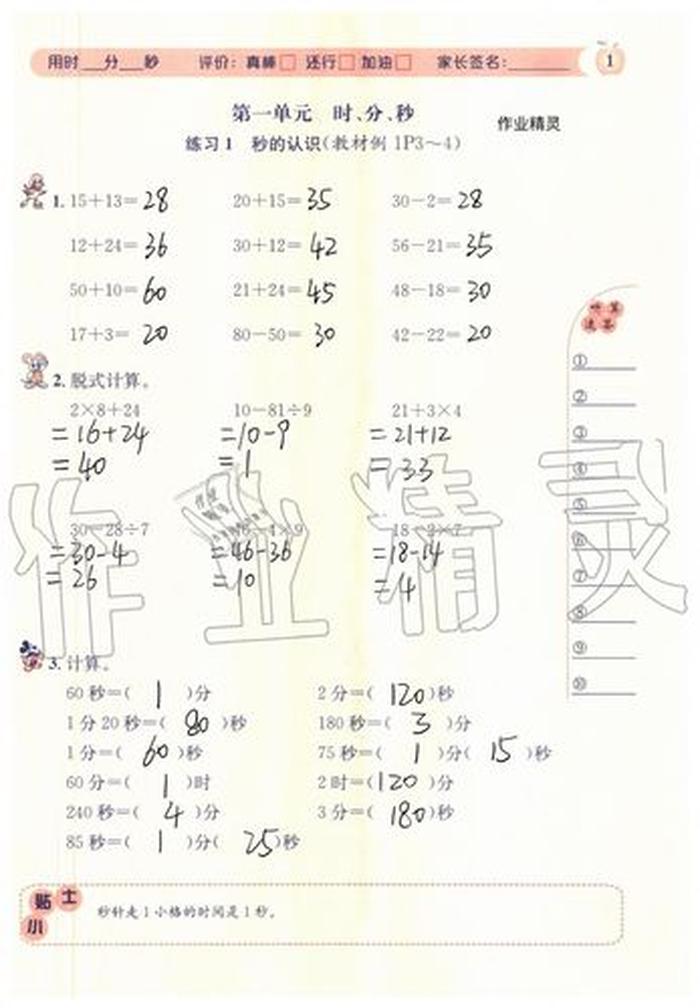 用时___分___秒 评价：真棒□ 还行□ 加油□ 家长签名：______ 1
第一单元 时、分、秒
作业精灵
练习1 秒的认识(教材例1P3～4)
1. 15+13=28 20+15=35 30-2=28
12+24=36 30+12=42 56-21=35
50+10=60 21+24=45 48-18=30
17+3=20 80-50=30 42-22=20
2. 脱式计算。
2×8+24 10-81÷9 21+3×4
=16+24 =10-9 =21+12
=40 =1 =33
30-28÷7 46-4×9 18-2×7
=30-4 =46-36 =18-14
=26 =10 =4
3. 计算。
60秒=( 1 )分 2分=( 120 )秒
1分20秒=( 80 )秒 180秒=( 3 )分
1分=( 60 )秒 75秒=( 1 )分( 15 )秒
60分=( 1 )时 2时=( 120 )分
240秒=( 4 )分 3分=( 180 )秒
85秒=( 1 )分( 25 )秒
①
②
③
④
⑤
⑥
⑦
⑧
⑨
⑩
小贴士
秒针走1小格的时间是1秒。
作业精灵